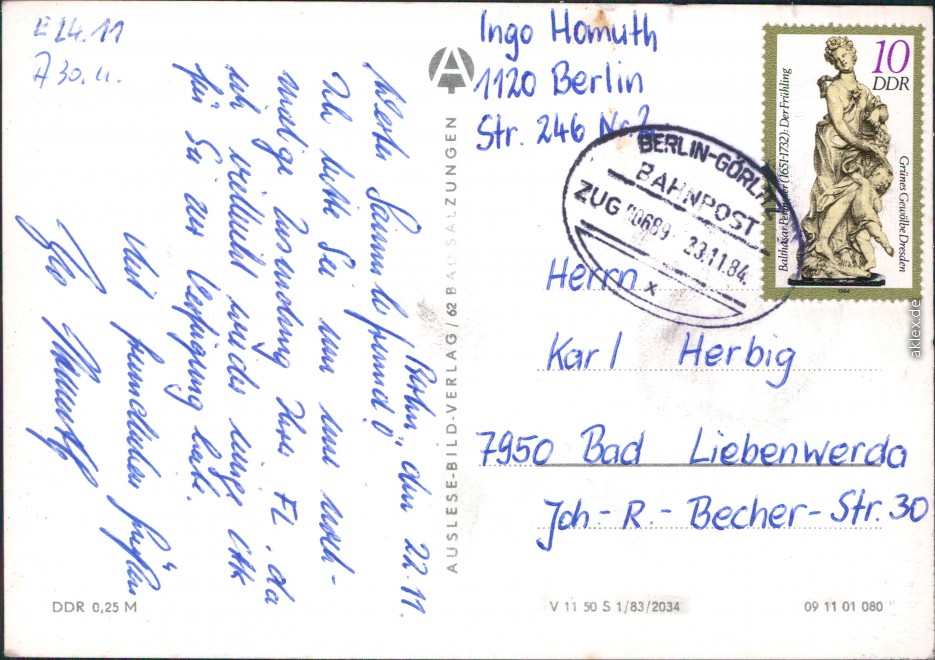 E 24.11
A 30.11.
Berlin, den 22.11.
Werter Sammlerfreund!
Ich bitte Sie um noch-
malige Zusendung Ihrer FL. da
ich vielleicht wieder einige
für Sie zur Verfügung habe.
Mit freundlichen Grüßen
Ingo Homuth
1120 Berlin
Str. 246 Nr.
BERLIN-GÖRLITZ
BAHNPOST
ZUG 23.11.84.
x
10
DDR
Balthasar Permoser (1651-1732): Der Frühling
Grünes Gewölbe Dresden
1984
Herrn
Karl Herbig
7950 Bad Liebenwerda
Joh-R.-Becher-Str. 30
AUSLESE-BILD-VERLAG / 62 BAD SALZUNGEN
DDR 0,25 M
V 11 50 S 1/83/2034
09 11 01 080
aklex.de